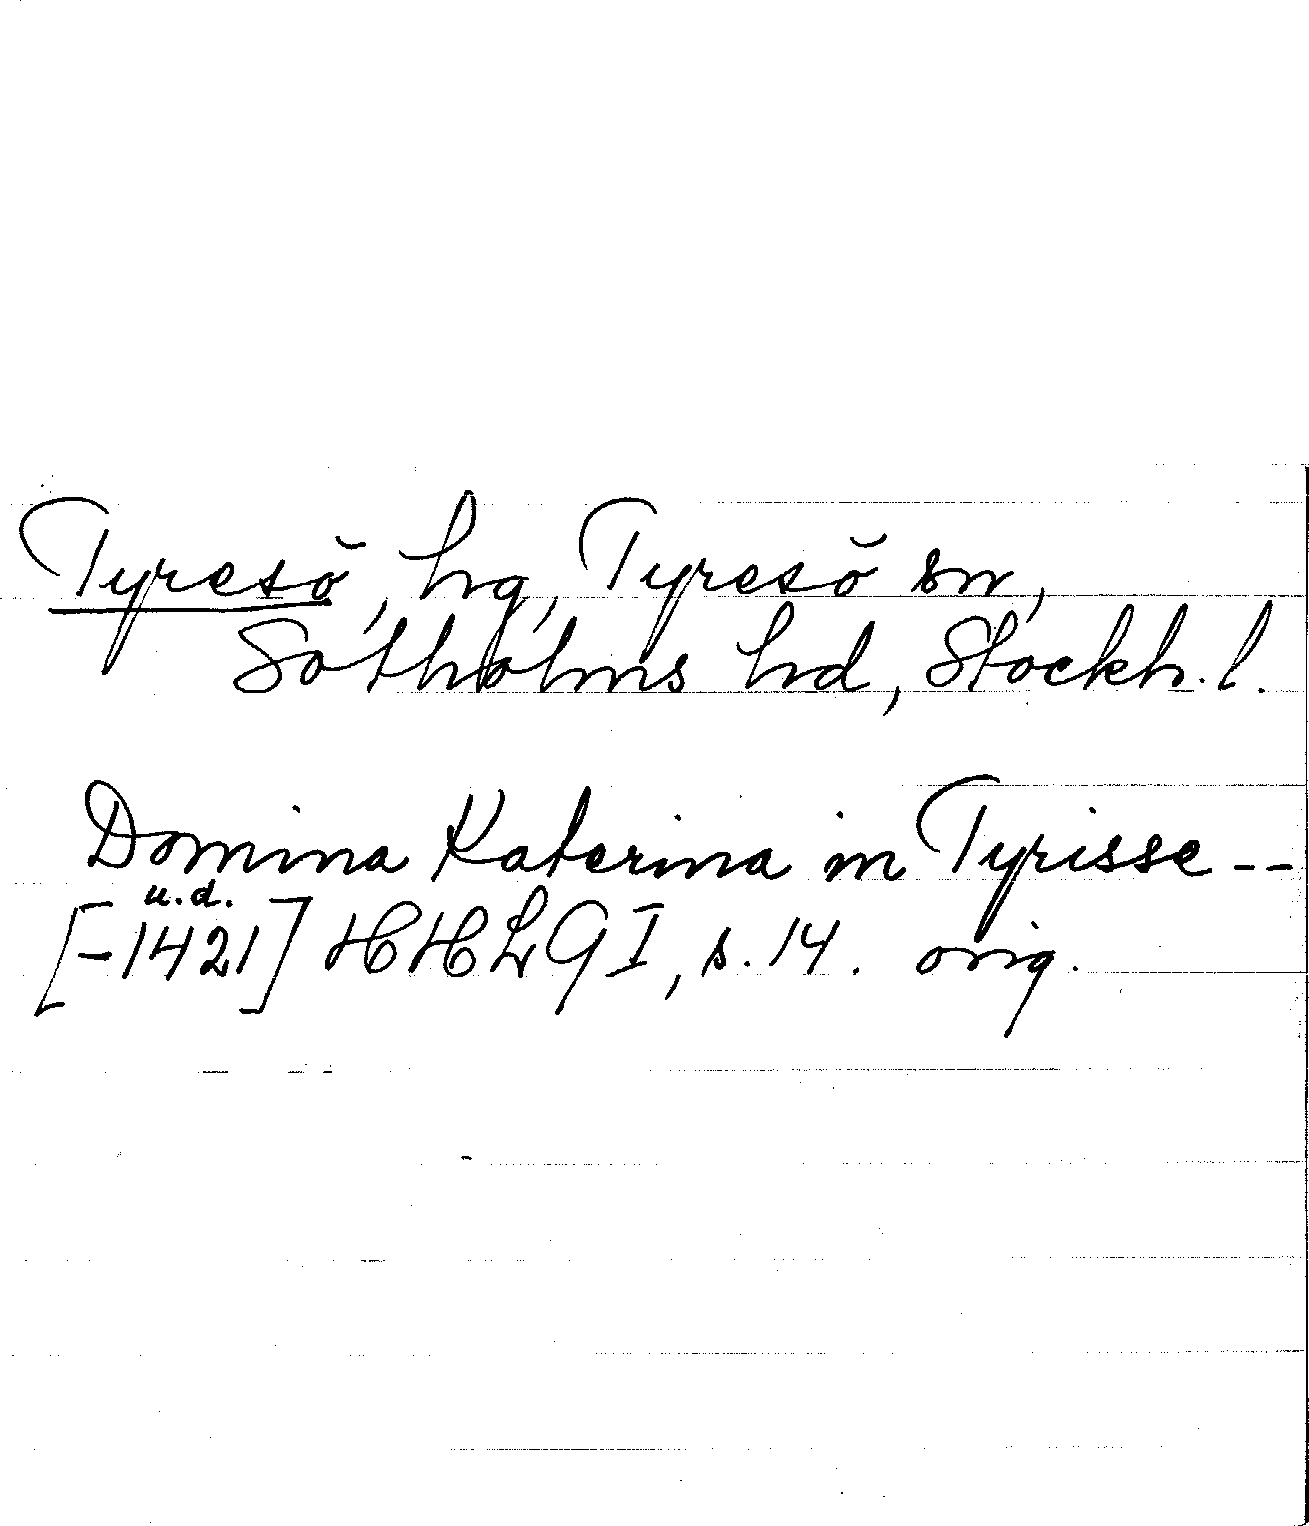 Tyresö, hg, Tyresö sn,
Sotholms hd, Stockh. l.
Domina Katerina in Tyrisse --
u.d.
[-1421] HHLG I, s. 14. orig.